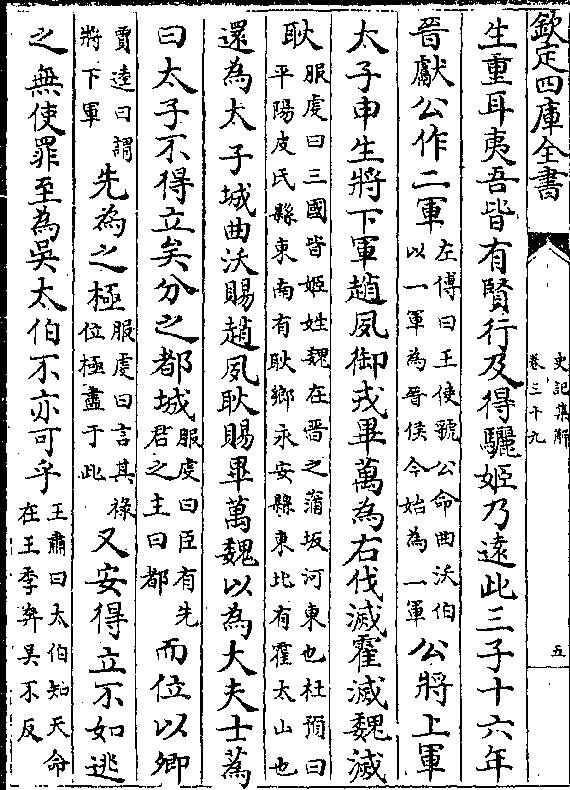 欽定四庫全書
史記集解
卷三十九
五
生重耳夷吾皆有賢行及得驪姬乃遠此三子十六年
晉獻公作二軍左傳曰王使虢公命曲沃伯以一軍為晉侯今始為一軍公將上軍
太子申生將下軍趙夙御戎畢萬為右伐滅霍滅魏滅
耿服虔曰三國皆姬姓魏在晉之蒲坂河東也杜預曰平陽皮氏縣東南有耿鄉永安縣東北有霍太山也
還為太子城曲沃賜趙夙耿賜畢萬魏以為大夫士蔿
曰太子不得立矣分之都城服虔曰臣有先君之主曰都而位以卿
賈逵曰謂將下軍先為之極服虔曰言其祿位極盡于此又安得立不如逃
之無使罪至為吳太伯不亦可乎王肅曰太伯知天命在王季奔吳不反